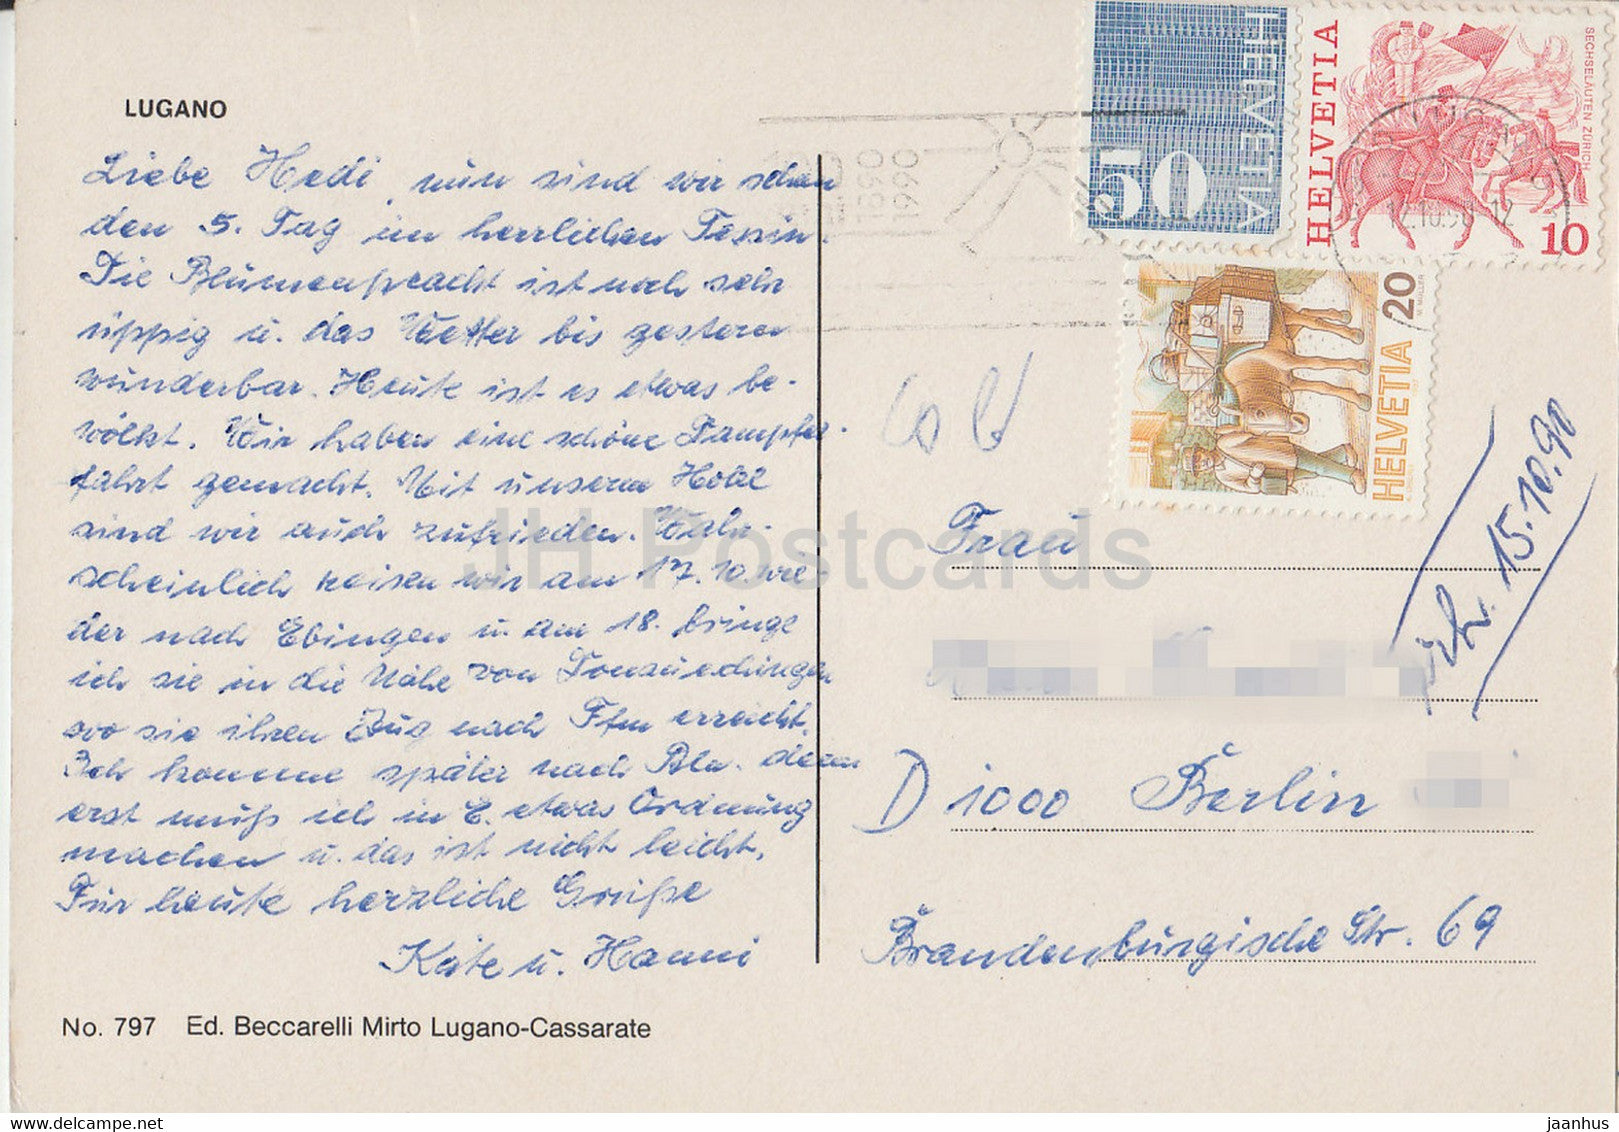 LUGANO
Liebe Hedi, nun sind wir schon
den 5. Tag im herrlichen Tessin.
Die Blumenpracht ist noch sehr
üppig u. das Wetter bis gestern
wunderbar. Heute ist es etwas be-
wölkt. Wir haben eine schöne Dampfer-
fahrt gemacht. Mit unserem Hotel
sind wir auch zufrieden. Wahr-
scheinlich reisen wir am 17. 10. wie-
der nach Ebingen u. am 18. bringe
ich sie in die Nähe von Donaueschingen
wo sie ihren Zug nach Ffm erreicht.
Ich komme später nach Bln. denn
erst muß ich in E. etwas Ordnung
machen u. das ist nicht leicht.
Für heute herzliche Grüße
Käte u. Hanni
No. 797 Ed. Beccarelli Mirto Lugano-Cassarate
HELVETIA
50
HELVETIA
SECHSELÄUTEN ZÜRICH
10
12.10.90-12
6900
HELVETIA
20
Frau
D 1000 Berlin
Brandenburgische Str. 69
15.10.90
JH Postcards
jaanhus